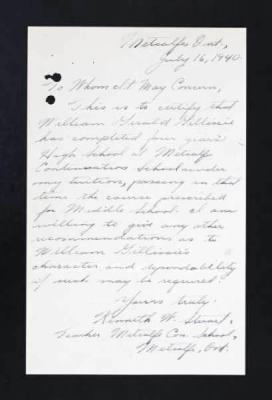 Metcalfe, Ont.,
July 16, 1940.
To Whom It May Concern,
This is to certify that
William Gerald Gillissie
has completed four years
High School at Metcalfe
Continuation School under
my tuition, passing in that
time the course prescribed
for Middle School. I am
willing to give any other
recommendations as to
William Gillissie's
character and dependability
if such may be required.
Yours truly,
Kenneth W. Stuart,
Teacher Metcalfe Con. School,
Metcalfe, Ont.